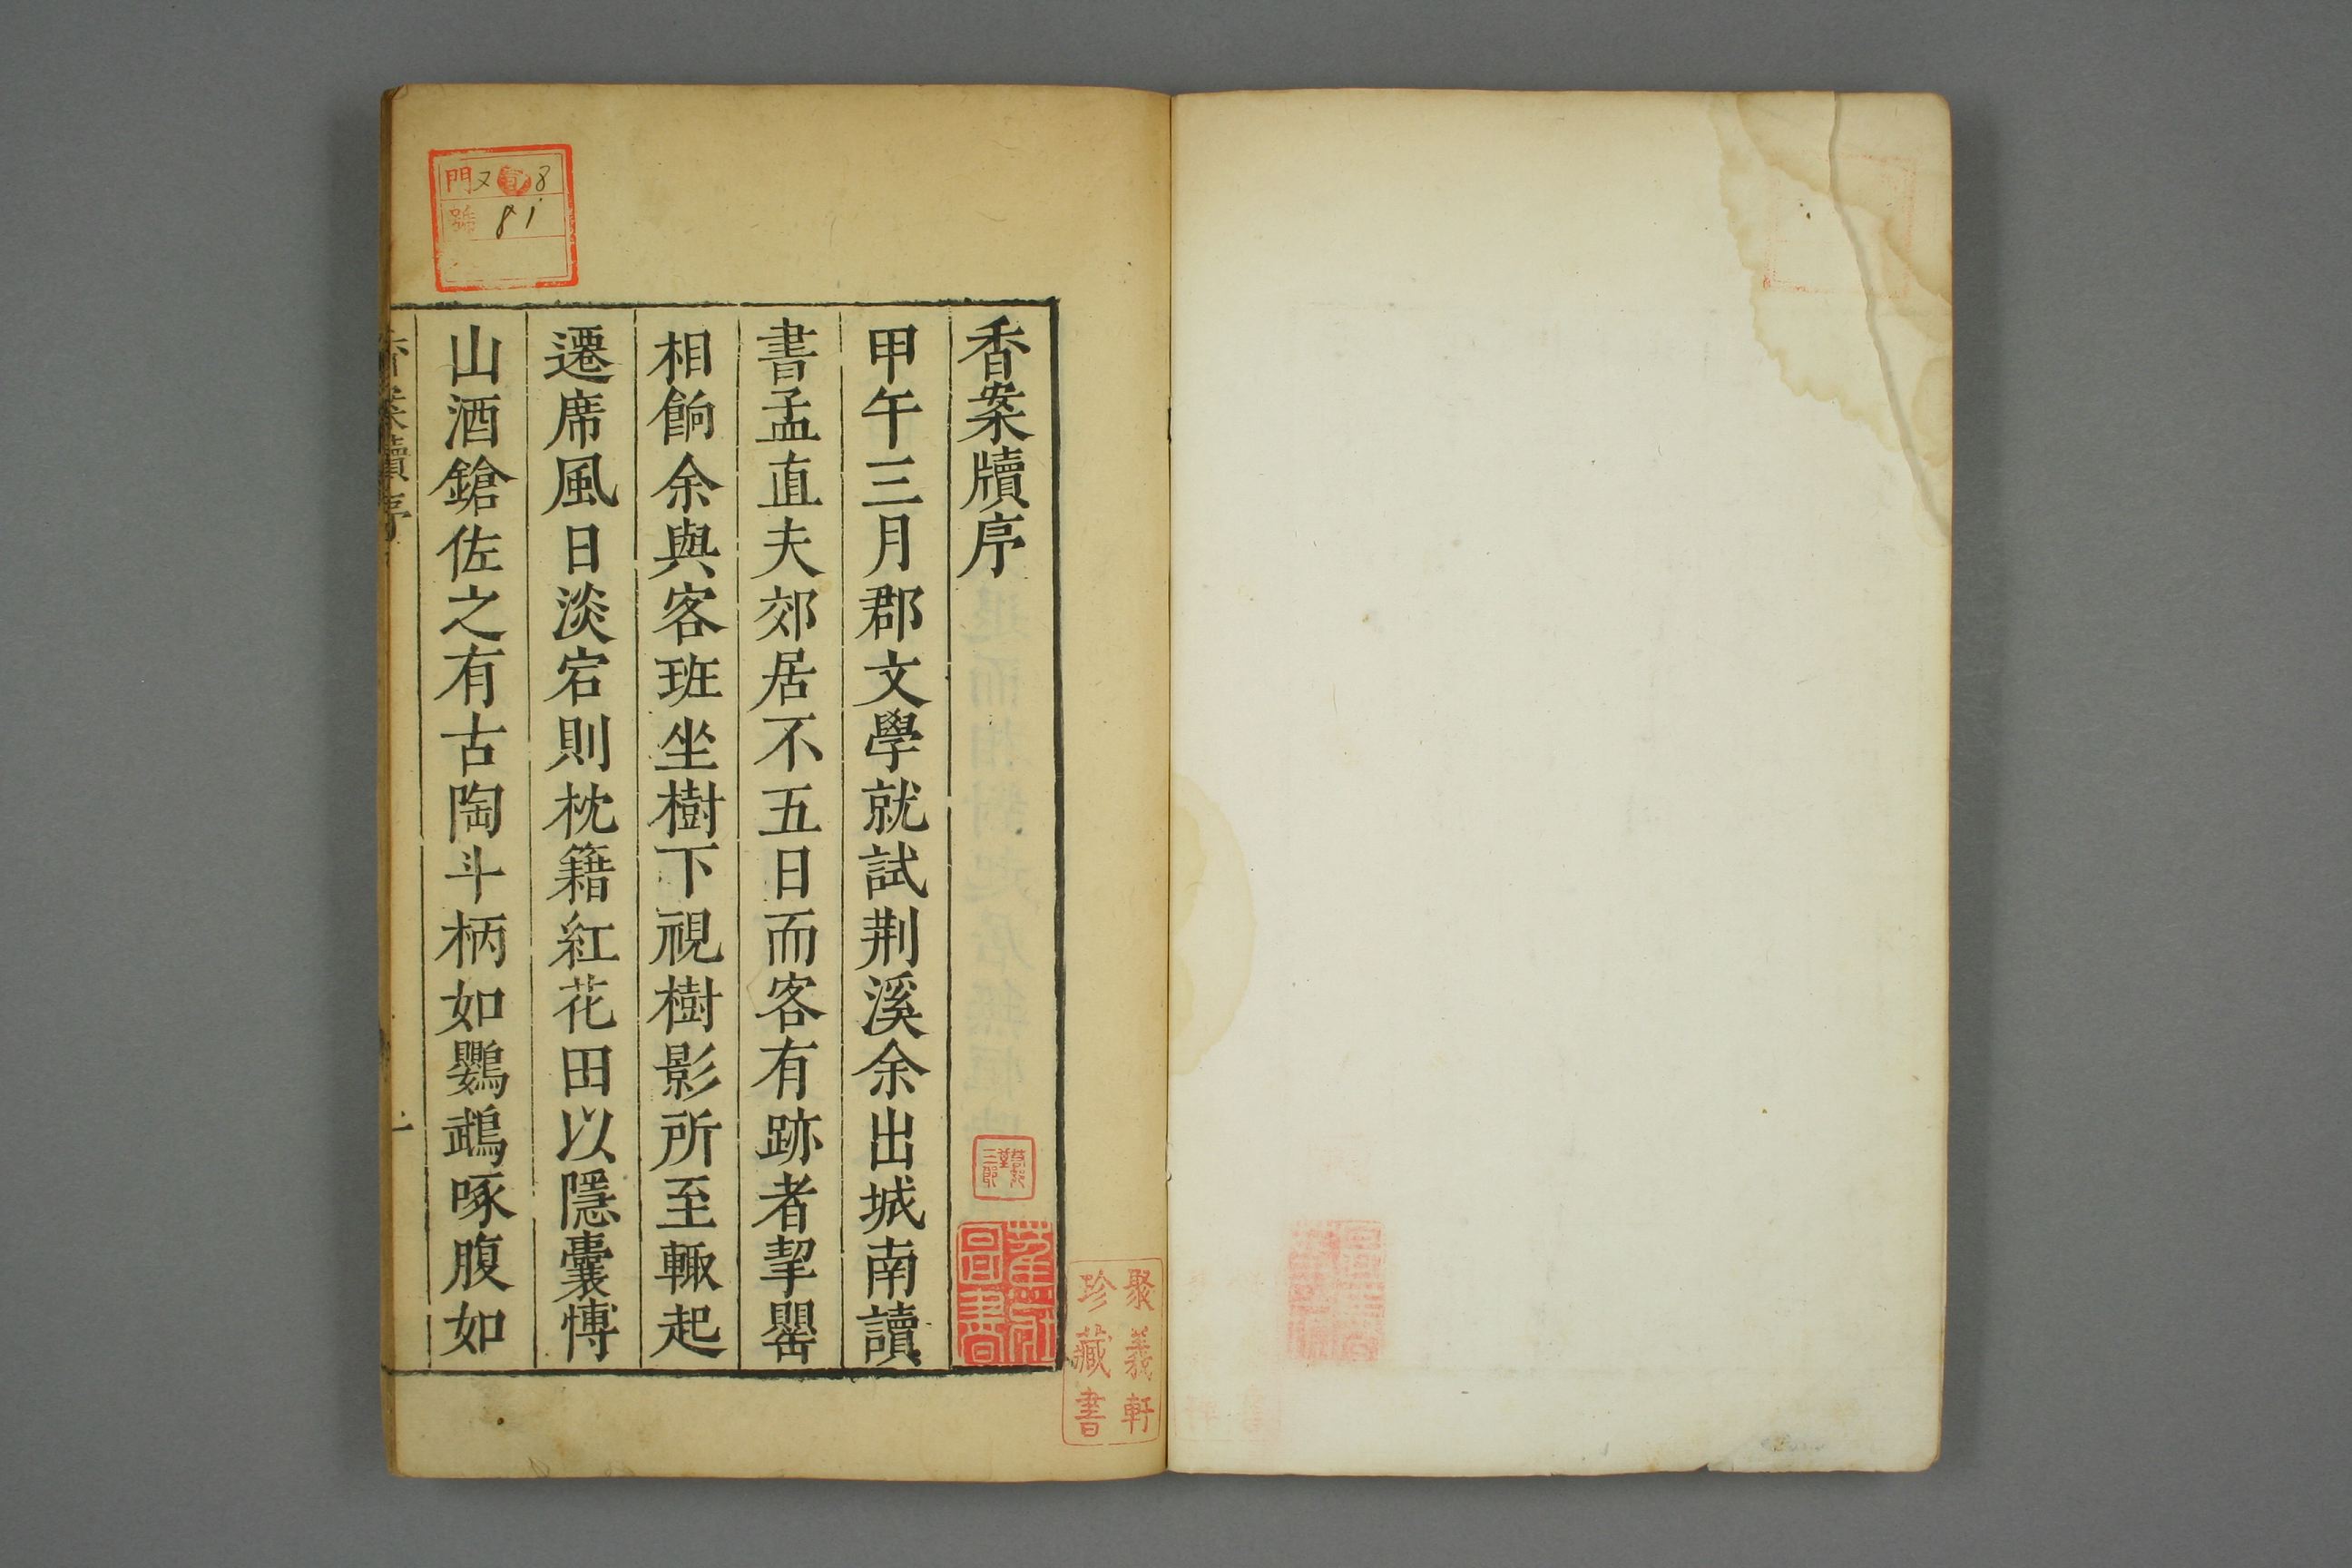 香案牘序
甲午三月郡文學就試荆溪余出城南讀
書孟直夫郊居不五日而客有跡者挈罌
相餉余與客班坐樹下視樹影所至輙起
遷席風日淡宕則枕籍紅花田以隱囊愽
山酒鎗佐之有古陶斗柄如鸚鵡啄腹如
香案牘序
聚義軒
珍藏書
門又8
號81